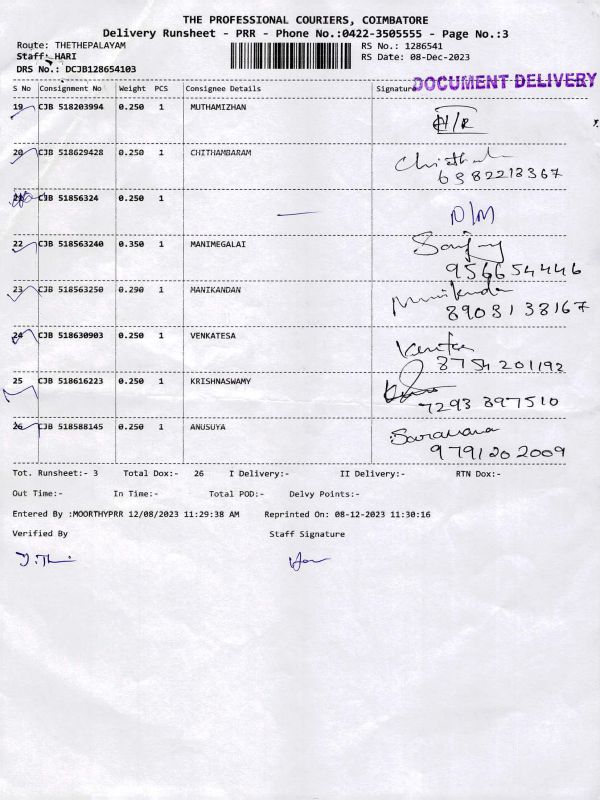 THE PROFESSIONAL COURIERS, COIMBATORE
Delivery Runsheet - PRR - Phone No.:0422-3505555 - Page No.:3
Route: THETHEPALAYAM RS No.: 1286541
Staff: HARI RS Date: 08-Dec-2023
DRS No.: DCJB128654103
DOCUMENT DELIVERY
S No Consignment No Weight PCS Consignee Details Signature
19 CJB 518203994 0.250 1 MUTHAMIZHAN
20 CJB 518629428 0.250 1 CHITHAMBARAM
6382213367
21 CJB 51856324 0.250 1 N/M
22 CJB 518563240 0.350 1 MANIMEGALAI
9566544446
23 CJB 518563250 0.290 1 MANIKANDAN
8903138167
24 CJB 518630903 0.250 1 VENKATESA
8754201192
25 CJB 518616223 0.250 1 KRISHNASWAMY
7293897510
26 CJB 518588145 0.250 1 ANUSUYA Saravana
9791202009
Tot. Runsheet:- 3 Total Dox:- 26 I Delivery:- II Delivery:- RTN Dox:-
Out Time:- In Time:- Total POD:- Delvy Points:-
Entered By :MOORTHYPRR 12/08/2023 11:29:38 AM Reprinted On: 08-12-2023 11:30:16
Verified By Staff Signature